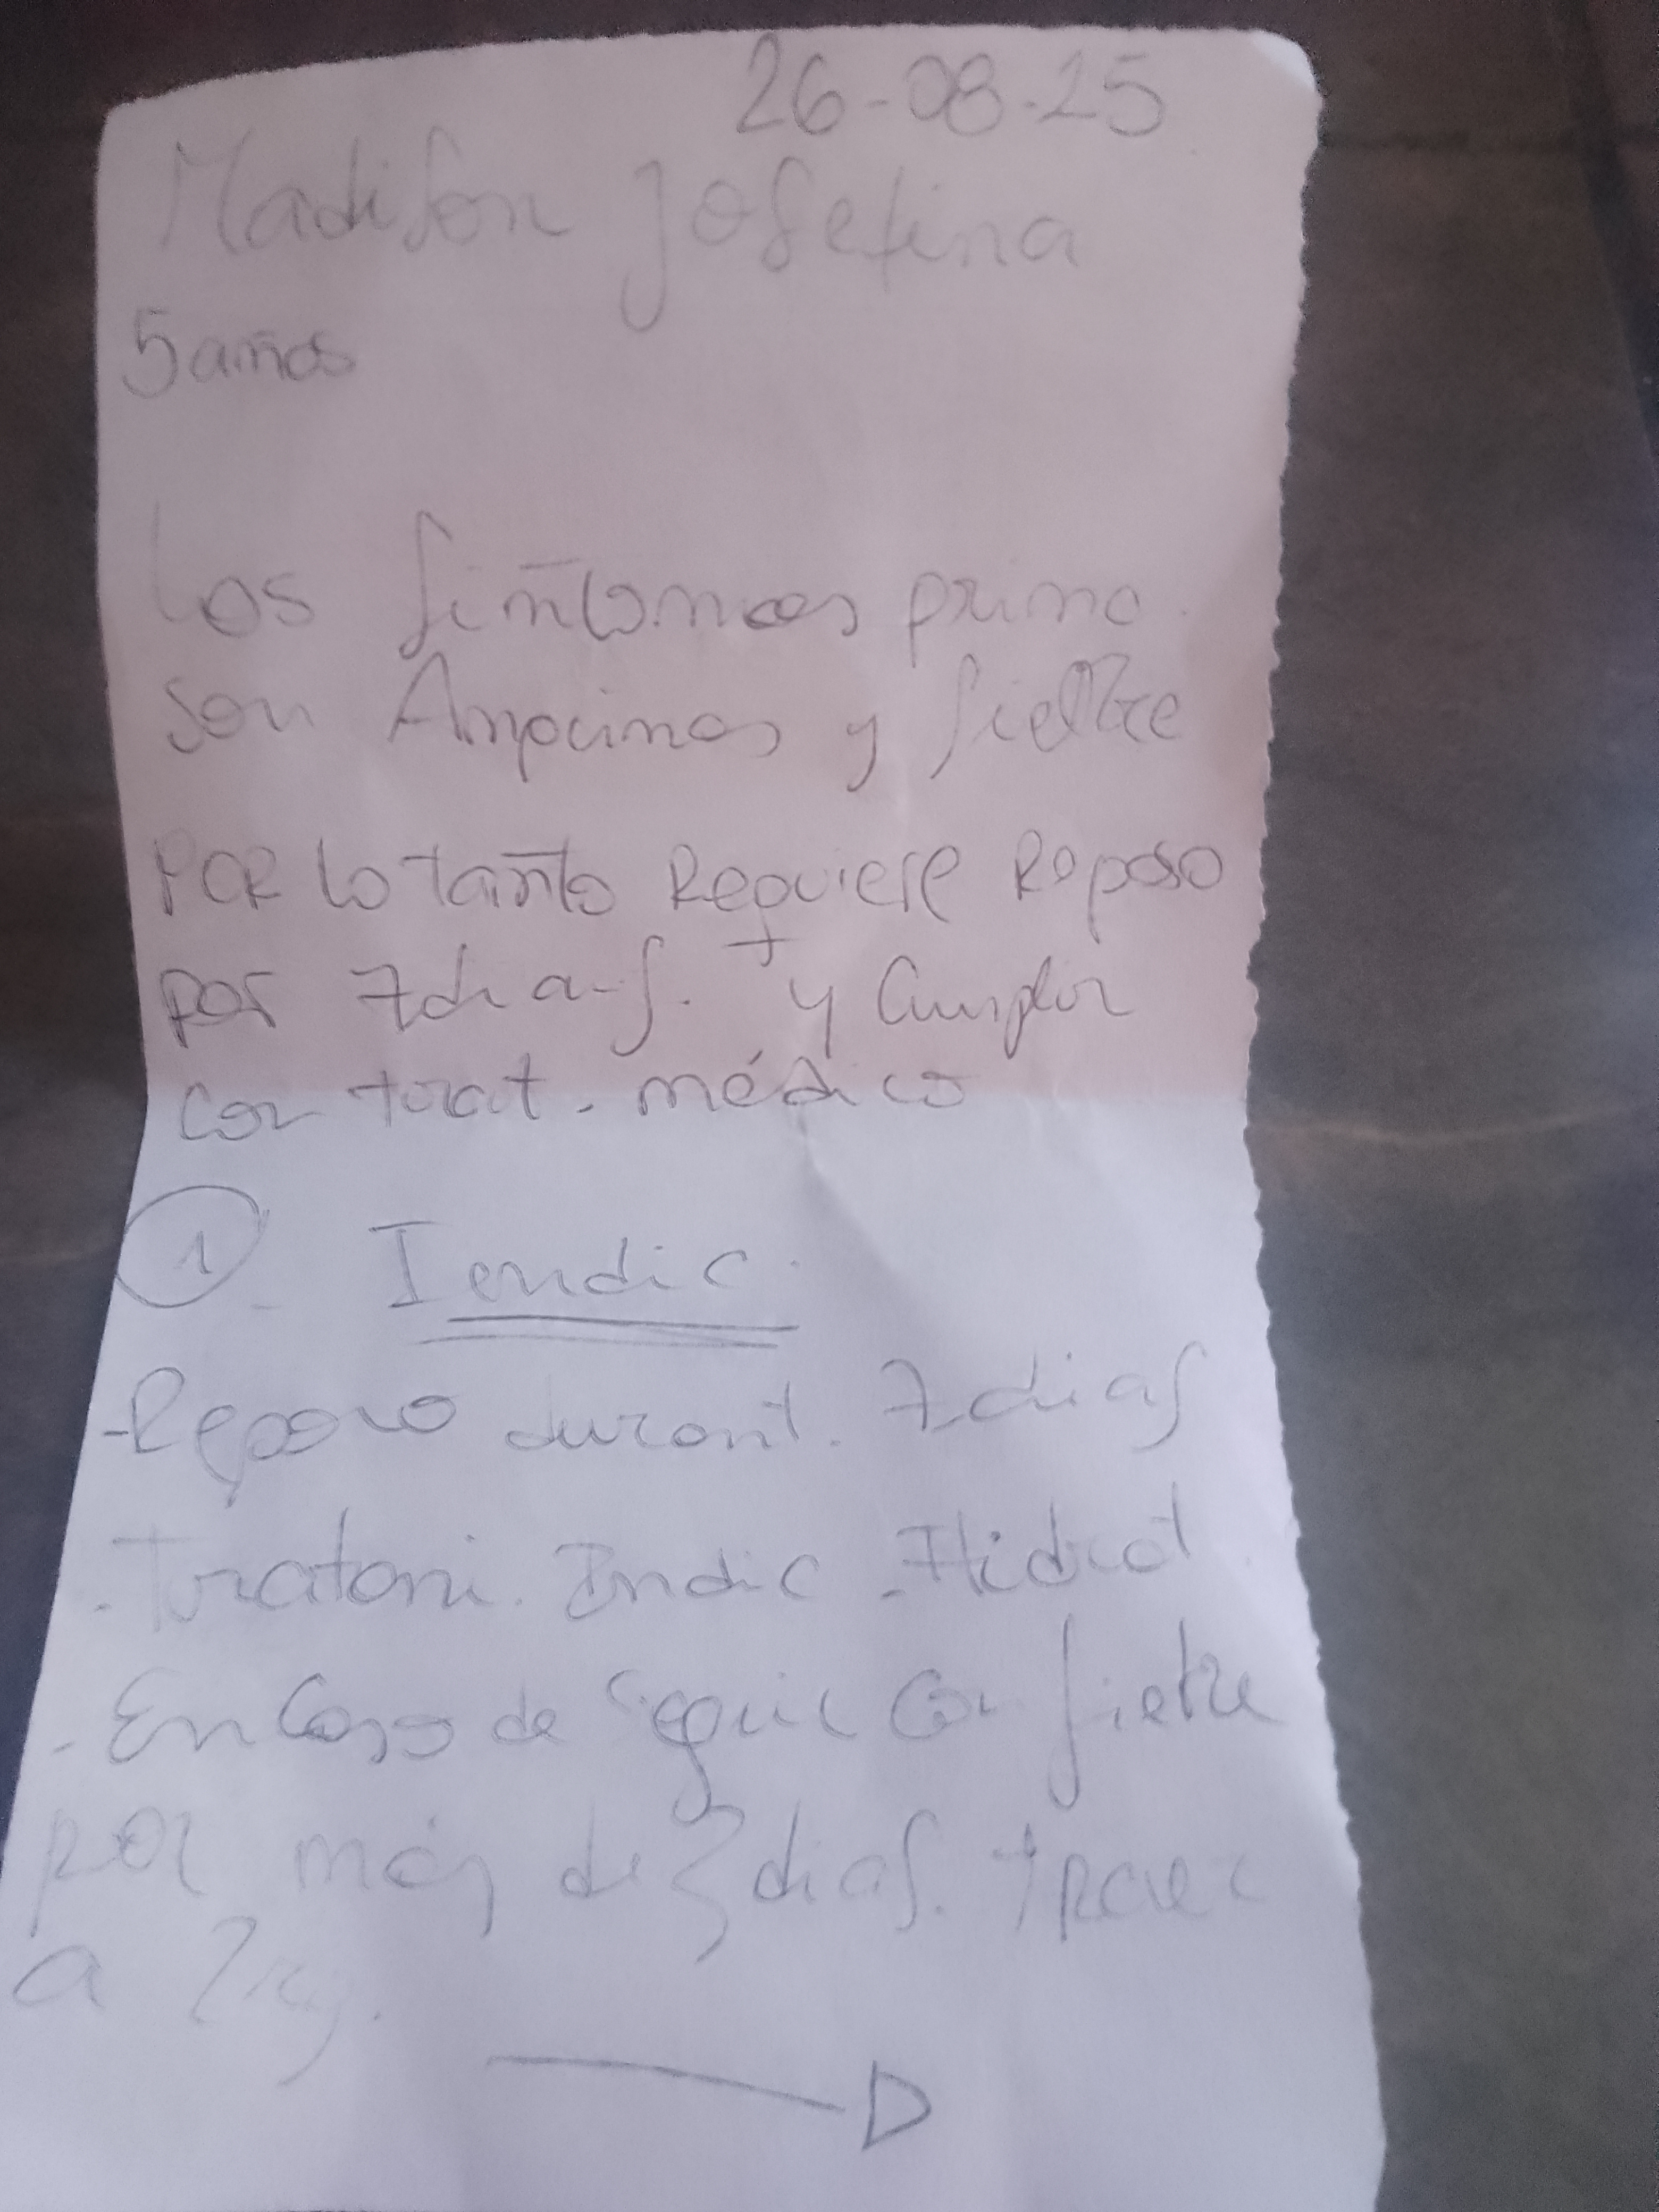 26-08-25
Madison Josefina
5 años
Los sintomas primo.
son Anginas y fiebre
POR lo tanto Requiere Reposo
por 7 dias. y Cumplir
con trat. médico
1 - Iendic.
- Reposo durant. 7 dias
- Tratami. Indic - Hidrat.
- En Caso de Seguir Con fiebre
por más de 3 dias. traer
a